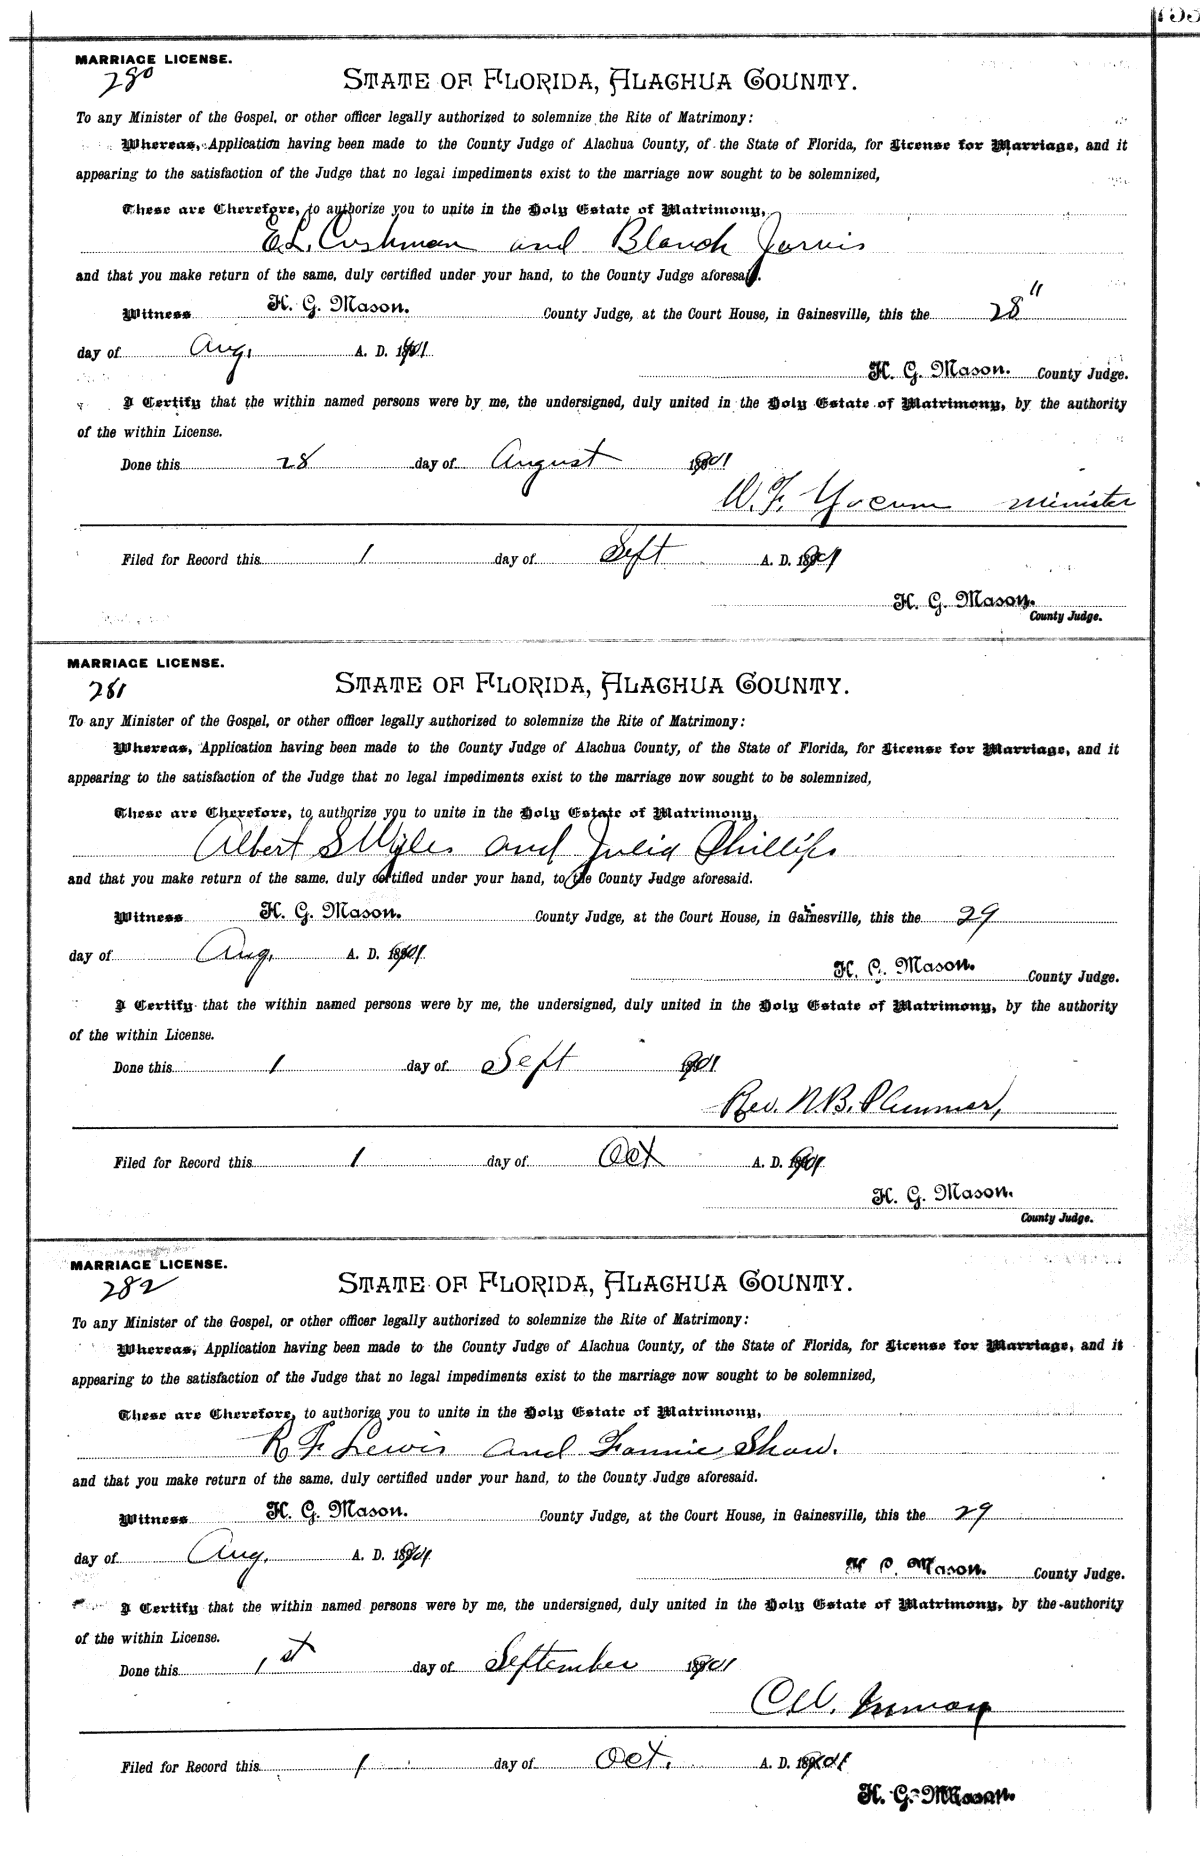 MARRIAGE LICENSE.
280
STATE OF FLORIDA, ALACHUA COUNTY.
To any Minister of the Gospel, or other officer legally authorized to solemnize the Rite of Matrimony:
Whereas, Application having been made to the County Judge of Alachua County, of the State of Florida, for License for Marriage, and it
appearing to the satisfaction of the Judge that no legal impediments exist to the marriage now sought to be solemnized,
These are Therefore, to authorize you to unite in the Holy Estate of Matrimony,
E. L. Cushman and Blanch Jarvis
and that you make return of the same, duly certified under your hand, to the County Judge aforesaid.
Witness H. G. Mason. County Judge, at the Court House, in Gainesville, this the 28"
day of Aug. A. D. 1901
H. G. Mason. County Judge.
I Certify that the within named persons were by me, the undersigned, duly united in the Holy Estate of Matrimony, by the authority
of the within License.
Done this 28 day of August 1901
W. F. Yocum minister
Filed for Record this 1 day of Sept A. D. 1901
H. G. Mason.
County Judge.
MARRIAGE LICENSE.
281
STATE OF FLORIDA, ALACHUA COUNTY.
To any Minister of the Gospel, or other officer legally authorized to solemnize the Rite of Matrimony:
Whereas, Application having been made to the County Judge of Alachua County, of the State of Florida, for License for Marriage, and it
appearing to the satisfaction of the Judge that no legal impediments exist to the marriage now sought to be solemnized,
These are Therefore, to authorize you to unite in the Holy Estate of Matrimony,
Albert S Wyles and Julia Phillips
and that you make return of the same, duly certified under your hand, to the County Judge aforesaid.
Witness H. G. Mason. County Judge, at the Court House, in Gainesville, this the 29
day of Aug. A. D. 1901
H. G. Mason. County Judge.
I Certify that the within named persons were by me, the undersigned, duly united in the Holy Estate of Matrimony, by the authority
of the within License.
Done this 1 day of Sept 1901
Rev. N. B. Plummer,
Filed for Record this 1 day of Oct A. D. 1901
H. G. Mason.
County Judge.
MARRIAGE LICENSE.
282
STATE OF FLORIDA, ALACHUA COUNTY.
To any Minister of the Gospel, or other officer legally authorized to solemnize the Rite of Matrimony:
Whereas, Application having been made to the County Judge of Alachua County, of the State of Florida, for License for Marriage, and it
appearing to the satisfaction of the Judge that no legal impediments exist to the marriage now sought to be solemnized,
These are Therefore, to authorize you to unite in the Holy Estate of Matrimony,
R. F. Lewis and Fannie Shaw.
and that you make return of the same, duly certified under your hand, to the County Judge aforesaid.
Witness H. G. Mason. County Judge, at the Court House, in Gainesville, this the 29
day of Aug. A. D. 1901
H. G. Mason. County Judge.
I Certify that the within named persons were by me, the undersigned, duly united in the Holy Estate of Matrimony, by the authority
of the within License.
Done this 1st day of September 1901
Inman
Filed for Record this 1 day of Oct. A. D. 1901
H. G. Mason.